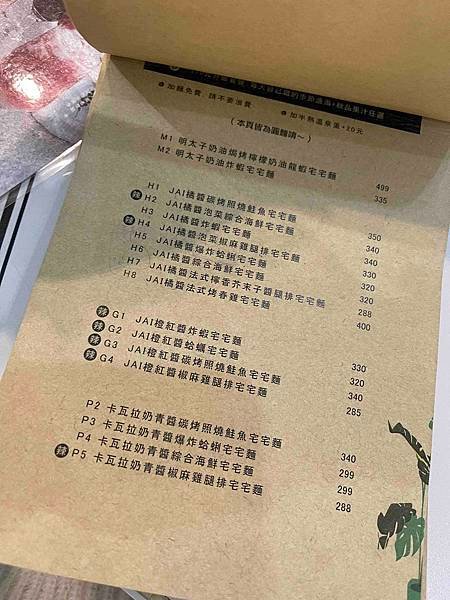 加麵免費，請不要浪費
加半熟溫泉蛋+20元
( 本頁皆為圓麵請～ )
M1 明太子奶油焗烤檸檬奶油龍蝦宅宅麵 499
M2 明太子奶油炸蝦宅宅麵 335
H1 JAI橘醬碳烤照燒鮭魚宅宅麵 350
辣 H2 JAI橘醬泡菜綜合海鮮宅宅麵 340
H3 JAI橘醬炸蝦宅宅麵 330
辣 H4 JAI橘醬泡菜椒麻雞腿排宅宅麵 340
H5 JAI橘醬爆炸蛤蜊宅宅麵 330
H6 JAI橘醬綜合海鮮宅宅麵 320
H7 JAI橘醬法式檸香芥末子醬腿排宅宅麵 320
H8 JAI橘醬法式烤春雞宅宅麵 288
400
辣 G1 JAI橙紅醬炸蝦宅宅麵 330
辣 G2 JAI橙紅醬蛤蠣宅宅麵 320
辣 G3 JAI橙紅醬碳烤照燒鮭魚宅宅麵 340
辣 G4 JAI橙紅醬椒麻雞腿排宅宅麵 285
P2 卡瓦拉奶青醬碳烤照燒鮭魚宅宅麵 340
P3 卡瓦拉奶青醬爆炸蛤蜊宅宅麵 299
P4 卡瓦拉奶青醬綜合海鮮宅宅麵 299
辣 P5 卡瓦拉奶青醬椒麻雞腿排宅宅麵 288